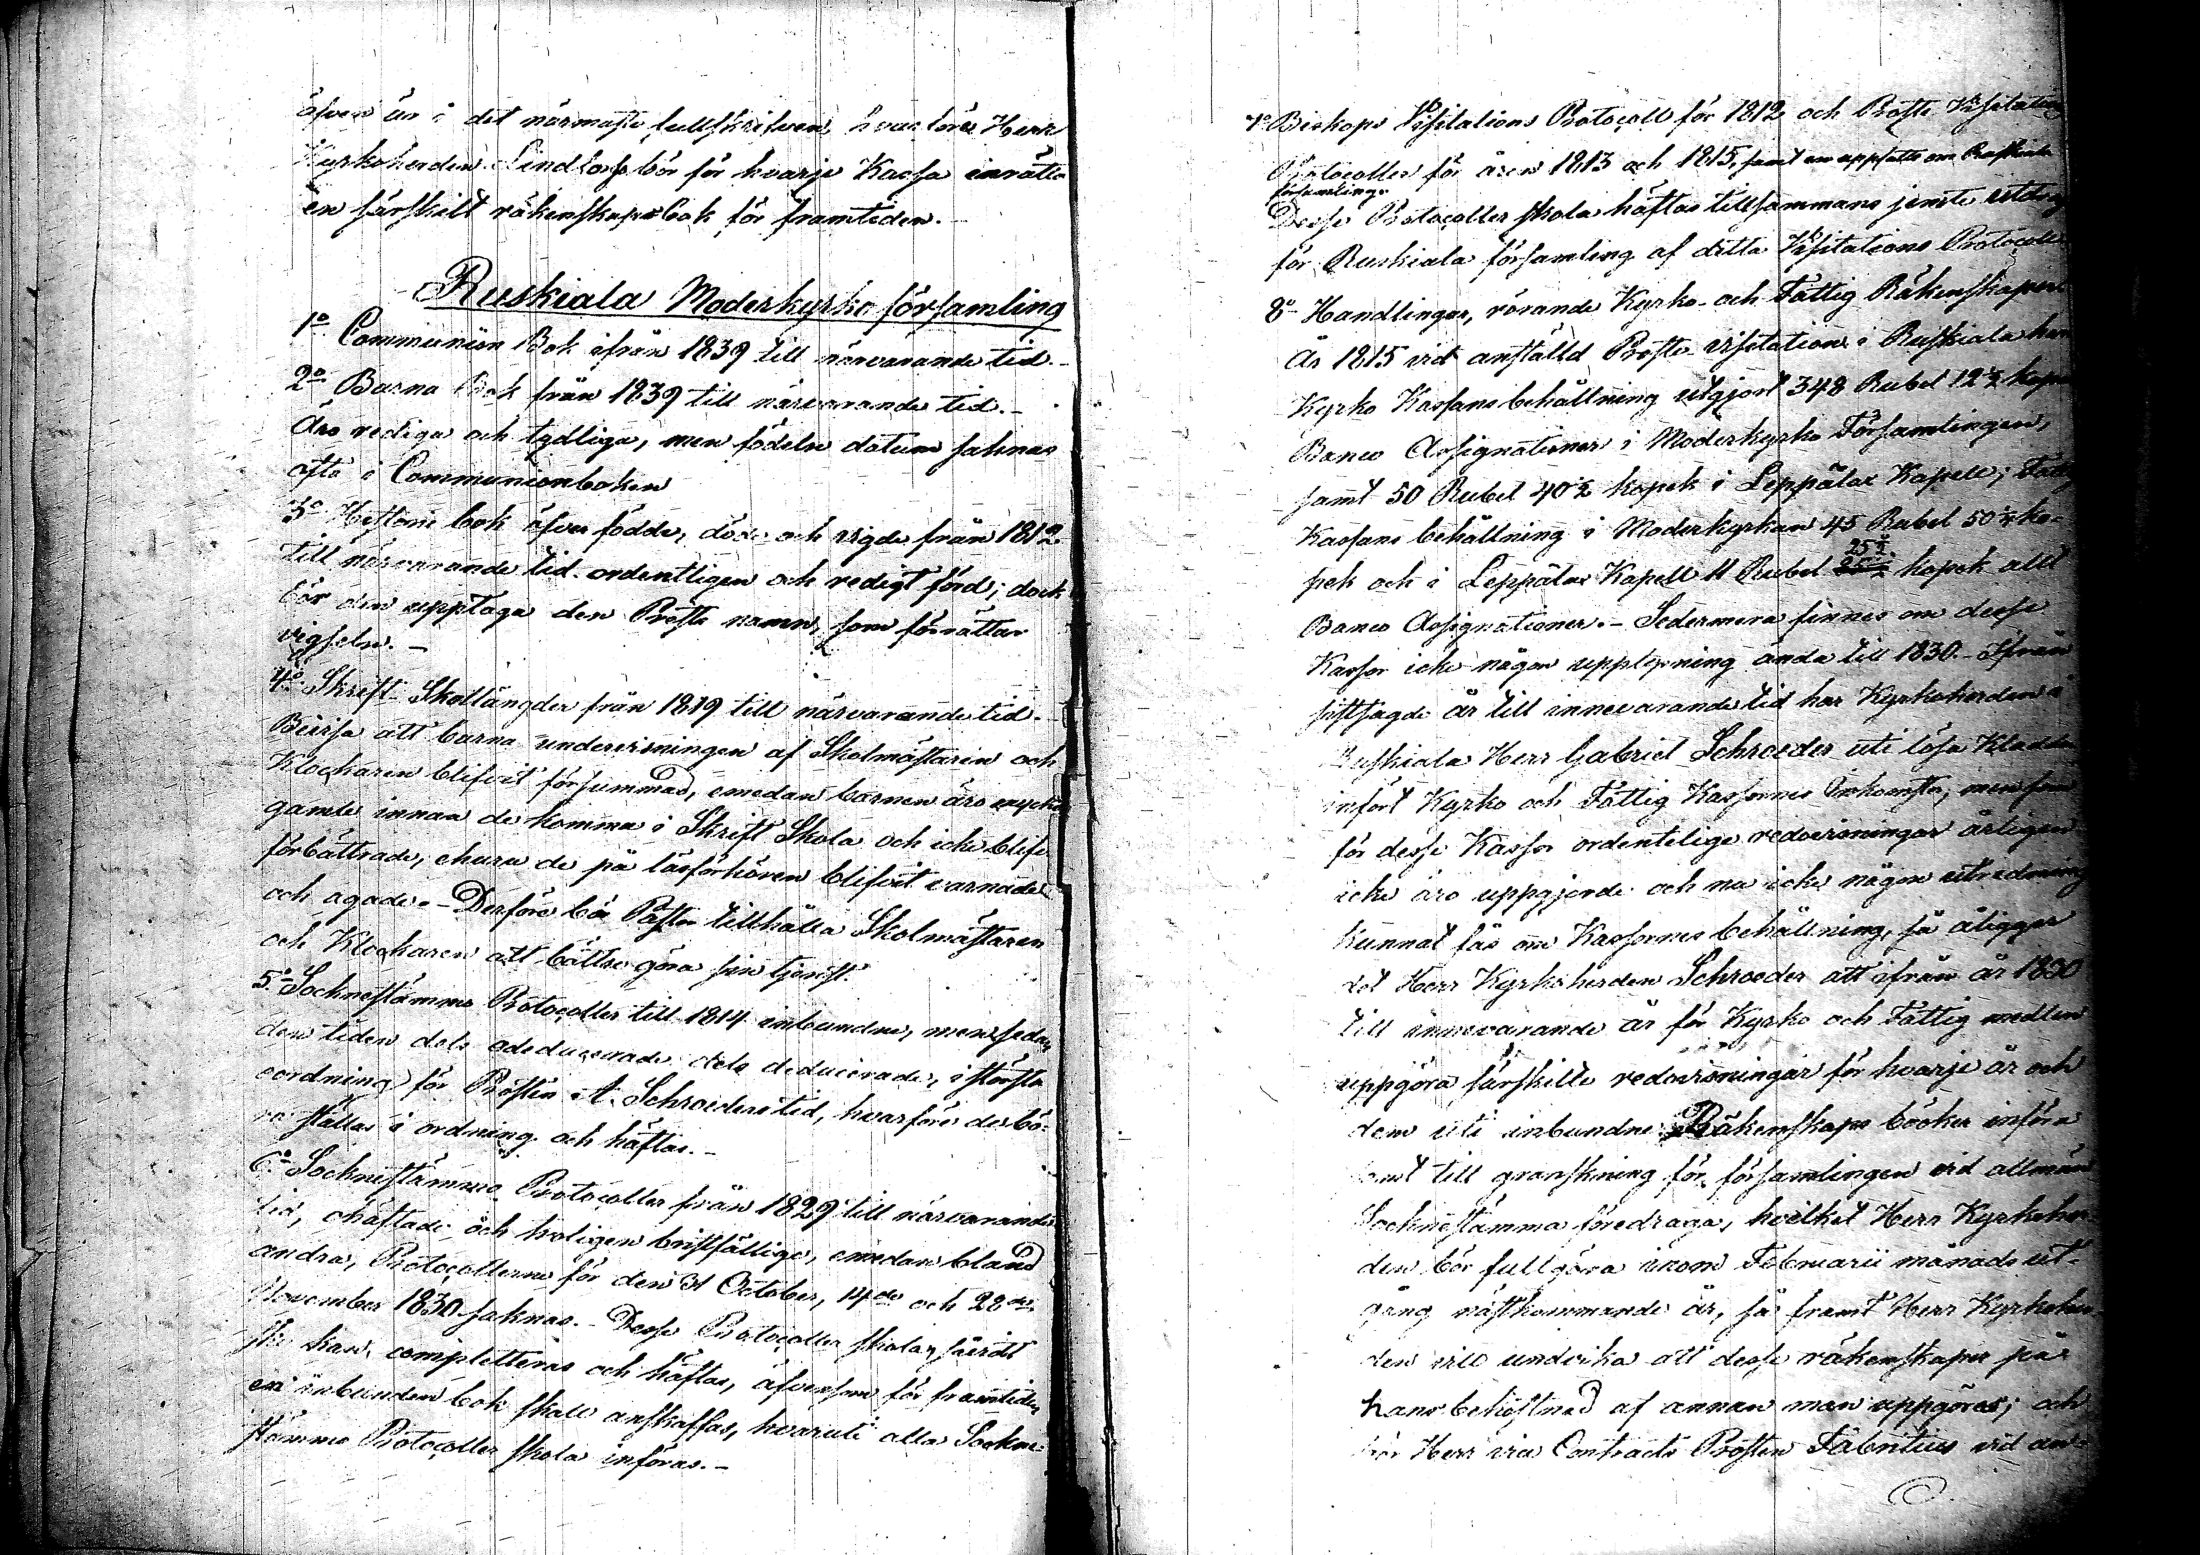 äfven är i det närmaste fullskrifven, hvarföre Herr
Kyrkoherden Lindfors bör för hvarje Kassa inrätta
en särskilt räkenskaps bok för framtiden. –
Ruskiala Moderkyrko församling
1o Communion Bok ifrån 1839 till närvarande tid. –
2o Barna Bok från 1839 till närvarande tid. –
äro rediga och tydliga, men födelse datum saknas
ofta i Communionboken
3o Historie bok öfver födde, döde och vigde från 1812
till närvarande tid ordentligen och redigt förd; dock
bör den upptaga den Prests namn, som förrättar
vigseln. –
4o Skrift Skollängder från 1819 till närvarande tid. –
Bevisa att barna undervisningen af Skolmästaren och
Klockaren blifvit försummad, emedan barnen äro mycket
gamle innan de komma i Skrift Skola och icke blifv
förbättrade, ehuru de på läsförhören blifvit varnade
och agade. – Derföre bör Pastor tillhålla Skolmästaren
och Klockaren att bättre göra sin tjenst.
5o Socknestämmo Protocoller till 1814 inbundne, men sedan
den tiden dels odeducerade dels deducerade, i största
oordning för Prosten A. Schroeders tid, hvarföre de bö-
ra ställas i ordning och häftas. –
6o Sockneståmmo Protocoller från 1829 till närvarande
tid, ohäftade och troligen bristfällige, emedan bland
andra, Protocollerne för den 31 October, 14de och 28de
November 1830 saknas. – Desse Protocoller skola, såvidt
ske kan, completteras och häftas, äfvensom för framtiden
en inbunden bok skall anskaffas, hvaruti alla Sockne-
stämmo Protocoller skola införas. –
7o Biskops Visitations Protocoll för 1812 och Prosts Visitations
Protocoller för åren 1813 och 1815, samt en uppsats om Ruskiala
församling.
Desse Protocoller skola häftas tillsammans jemte utdrag
för Ruskiala församling af detta Visitations Protocoll
8o Handlingar, rörande Kyrko- och Fattig Räkenskaper
År 1815 vid anställd Prosts visitation i Ruskiala har
Kyrko Kassans behållning utgjort 348 Rubel 12½ kopek
Banco Assignationer i Moderkyrko Församlingen,
samt 50 Rubel 40½ kopek i Leppälax Kapell; Fattig
Kassans behållning i Moderkyrkan 45 Rubel 50½ ko-
25½
pek och i Leppälax Kapell 11 Rubel kopek allt
Banco Assignationer. – Sedermera finnes om desse
Kassor icke någon upplysning ända till 1830. – Ifrån
sistsagde år till innevarande tid har Kyrkoherden i
Ruskiala Herr Gabriel Schroeder uti lösa Kladdar
infört Kyrko och Fattig Kassornes Inkomster, men som
för desse Kassor ordentelige redovisningar årligen
icke äro uppgjorde och nu icke någon utredning
kunnat fås om Kassornes behållning, så åligger
det Herr Kyrkoherden Schroeder att ifrån år 1830
till innevarande år för Kyrko och Fattig medlen
uppgöra särskilte redovisningar för hvarje år och
dem uti inbundne Räkenskaps böcker införa
samt till granskning för församlingen vid allmän
Sockneståmma föredraga, hvilket Herr Kyrkoher-
den bör fullgöra inom Februarii månads ut-
gång nästkommande år, så framt Herr Kyrkoher-
den vill undvika att desse räkenskaper på
hans bekostnad af annan man uppgöras; och
bör Herr vice Contracts Prosten Fabritius vid an-